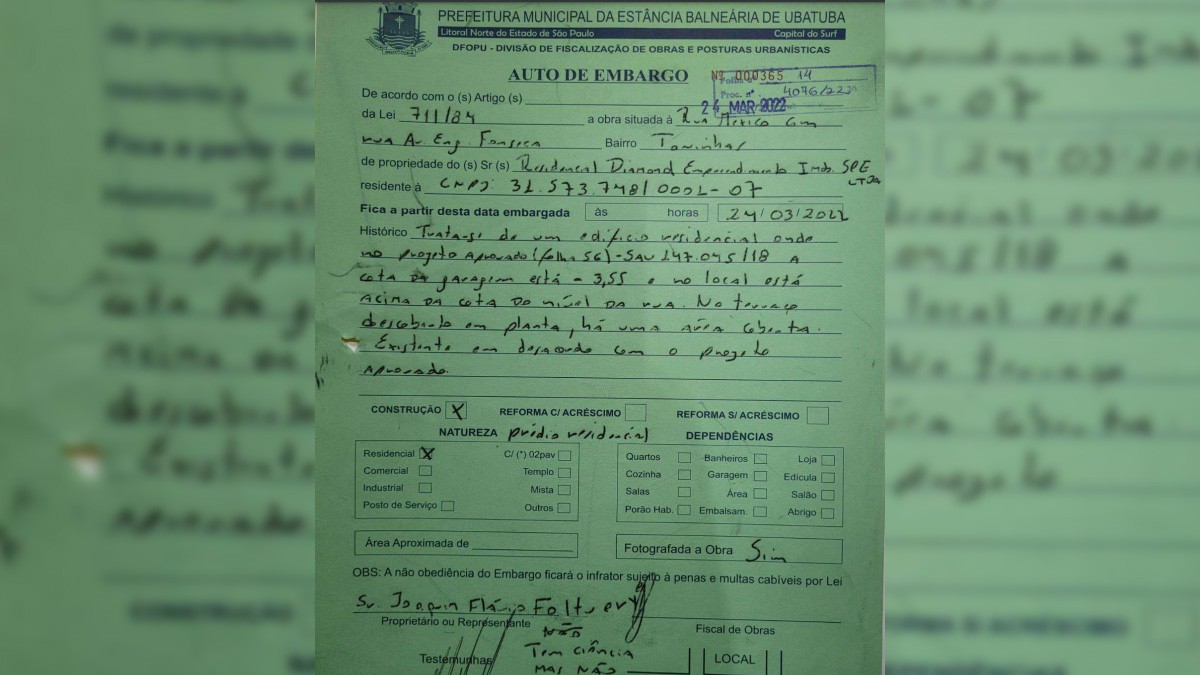 PREFEITURA MUNICIPAL DA ESTÂNCIA BALNEÁRIA DE UBATUBA
Litoral Norte do Estado de São Paulo Capital do Surf
DFOPU - DIVISÃO DE FISCALIZAÇÃO DE OBRAS E POSTURAS URBANÍSTICAS
AUTO DE EMBARGO Nº 000365 14
Proc. nº 4076/22
24 MAR 2022
De acordo com o (s) Artigo (s)
da Lei 711/84 a obra situada à Rua Mexico com
rua Av. Eng. Fonseca Bairro Toninhas
de propriedade do (s) Sr (s) Residencial Diamond Empreendimento Imob. SPE LTDA
residente à CNPJ: 31.573.748/0001-07
Fica a partir desta data embargada às horas 24/03/2022
Histórico Trata-se de um edificio residencial onde
no projeto Aprovado (folha 56) - SAU 147.045/18 A
cota da garagem está - 3,55 e no local está
Acima da cota do nível da rua. No terraço
descoberto em planta, há uma área coberta.
Existente em desacordo com o projeto
Aprovado.
CONSTRUÇÃO X REFORMA C/ ACRÉSCIMO REFORMA S/ ACRÉSCIMO
NATUREZA prédio residencial DEPENDÊNCIAS
Residencial X C/ (*) 02pav Quartos Banheiros Loja
Comercial Templo Cozinha Garagem Edícula
Industrial Mista Salas Área Salão
Posto de Serviço Outros Porão Hab. Embalsam. Abrigo
Área Aproximada de Fotografada a Obra Sim
OBS: A não obediência do Embargo ficará o infrator sujeito à penas e multas cabíveis por Lei
Sr. Joaquin Flávio
Proprietário ou Representante Fiscal de Obras
não
Testemunhas Tem ciência LOCAL
mas não